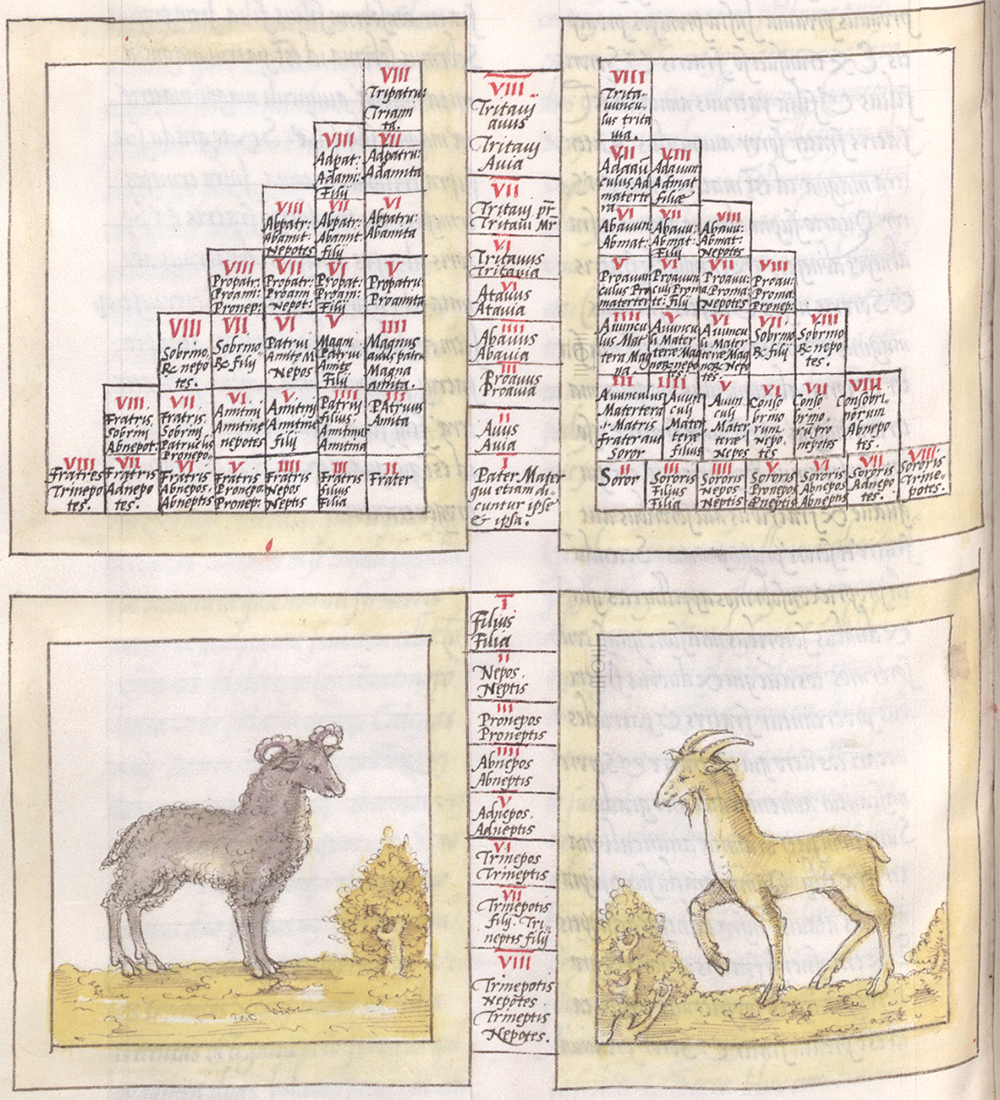 VIII
Tripatru:
Triami
ta.
VIII
Adpat:
Adami:
Filij
VII
Adpatru:
Adamita
VIII
Abpatr:
Abamit
Nepotes
VII
Abpatr:
Abamit:
filij
VI
Abpatru:
Abamita
VIII
Propatr:
Proami:
Pronep:
VII
Propatr:
Proami
Nepot:
VI
Propat:
Proami:
Filij
V
Propatru:
Proamita
VIII
Sobrino
R. nepo
tes.
VII.
Sobrino
R. filij
VI
Patrui
Amite M
Nepos
V
Magni
Patrui
Amite
Filij
IIII
Magnus
auus patru
Magna
amita.
VIII.
Fratris,
Sobrini
Abnepot:
VII
Fratris,
Sobrini
Patruelis
Pronepo:
VI.
Amitini
Amitinæ
nepotes
V.
Amitini
Amitinæ
filij
IIII
Patrui
Filius,
Amitinus
Amitina
III
Patruus
Amita
VIII
Fratres
Trinepo
tes.
VII
Fratris
Adnepo
tes.
VI
Fratris
Abnepos.
Abneptis
V
Fratris
Pronepo:
Pronep:
IIII
Fratris
Nepos
Neptis
III
Fratris
Filius
Filia
II
Frater
VIII
Tritaui
auus
Tritaui
Auia
VII
Tritaui pr
Tritaui Mr
VI
Tritauus
Tritauia
VI
Atauus
Atauia
IIII
Abauus
Abauia
III
Proauus
Proauia
II
Auus
Auia
I
Pater Mater
qui etiam di-
cuntur ipse
& ipsa.
VIII
Trita-
uuncu-
lus trita
uia.
VII
Adauū
culus Adr
ra
VIII
Adauun
Admat
Filiæ
VI
Abauun
Abmat:
VII
Abauu:
Abmat:
Filij
VIII
Abauu:
Abmat:
Nepotes
V
Proauun
culus Pro
matertera
VI
Proauun
Filij
VII
Proauu:
Proma
Nepotes
VIII
Proauu
Proma
Pronep.
IIII
Auuncu
lus Mat
tera Mag
na.
V
Auuncu
VI
Auuncu
VII.
Sobrino
R. filij
VIII
Sobrino
R. nepo
tes.
III
Auunculus
Matertera
i. Matris
Frater aut
Soror
IIII
Auun
culi
Mater
teræ
filius
V
Auun
culi
Mater
teræ
Nepos
VI
Conso
brino
rum
nepo.
tes
VII
Conso
brino
rū pro
nepotes
VIII
Consobri-
norum
Abnepo
tes.
II
Soror
III
Sororis
Filius
Filia
IIII
Sororis
Nepos
Neptis
V
Sororis
Pronepos
Proneptis
VI
Sororis
Abnepos
Abneptis
VII
Sororis
Adnepo
tes.
VIII
Sororis
Trine-
potes.
I
Filius
Filia
II
Nepos.
Neptis
III
Pronepos
Proneptis
IIII
Abnepos
Abneptis
V
Adnepos.
Adneptis
VI
Trinepos
Trineptis
VII
Trinepotis
filij. Tri-
neptis filij
VIII
Trinepotis
Nepotes
Trineptis
Nepotes.